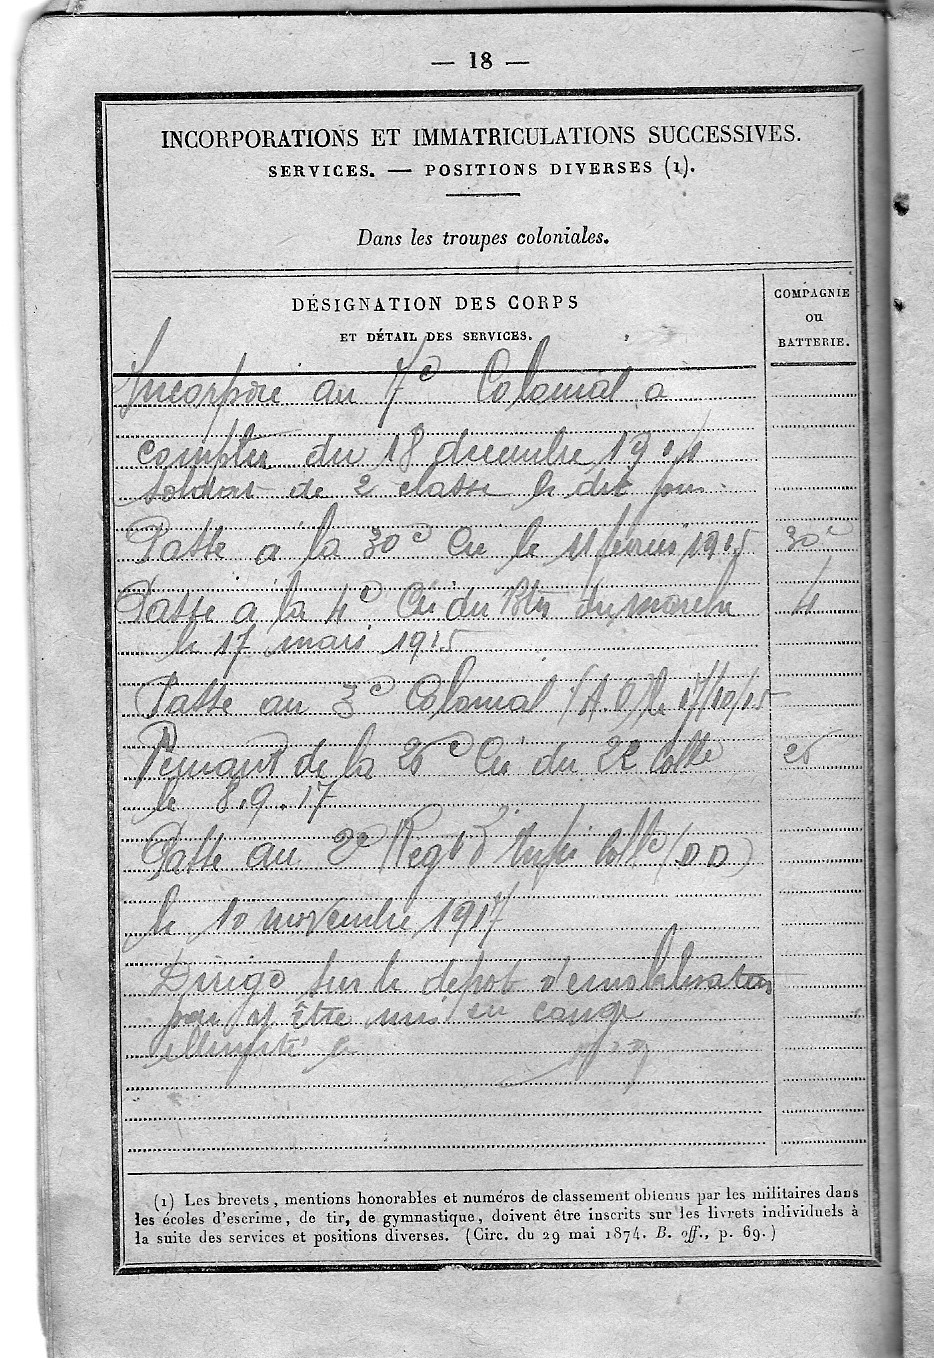 — 18 —
INCORPORATIONS ET IMMATRICULATIONS SUCCESSIVES.
SERVICES. — POSITIONS DIVERSES (1).
Dans les troupes coloniales.
DÉSIGNATION DES CORPS
ET DÉTAIL DES SERVICES.
COMPAGNIE
ou
BATTERIE.
Incorporé au 7e Colonial a
compter du 18 decembre 1914
soldat de 2 classe le dit jour
Passé a la 30e Cie le 11 fevrier 1915 30e
Passé a la 4e Cie du Bon de marche 4
le 17 mars 1915
Passé au 3e Colonial (A.O) le 17/10/15
Venant de la 26e Cie du 22 Colle 26
le 8.9.17
Passé au 2e Regt d'Infie Colle (DD)
le 10 novembre 1917
Dirigé sur le depot demobilisateur
pour y être mis en congé
illimité le
(1) Les brevets, mentions honorables et numéros de classement obtenus par les militaires dans
les écoles d'escrime, de tir, de gymnastique, doivent être inscrits sur les livrets individuels à
la suite des services et positions diverses. (Circ. du 29 mai 1874. B. off., p. 69.)